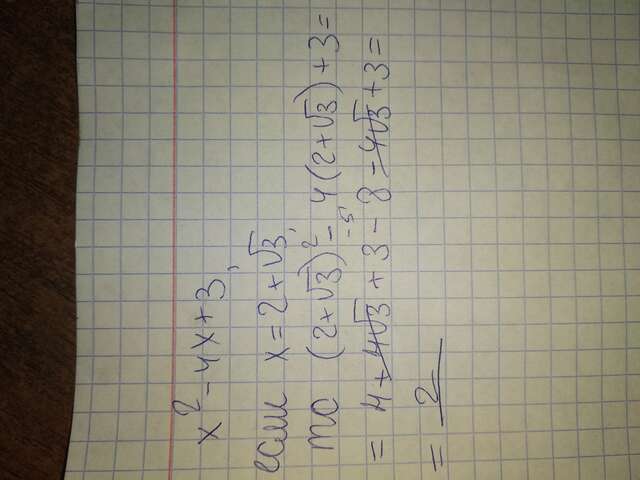 x² - 4x + 3,
если x = 2 + √3,
то (2 + √3)² - 4(2 + √3) + 3 =
-5
= 4 + 4√3 + 3 - 8 - 4√3 + 3 =
= 2